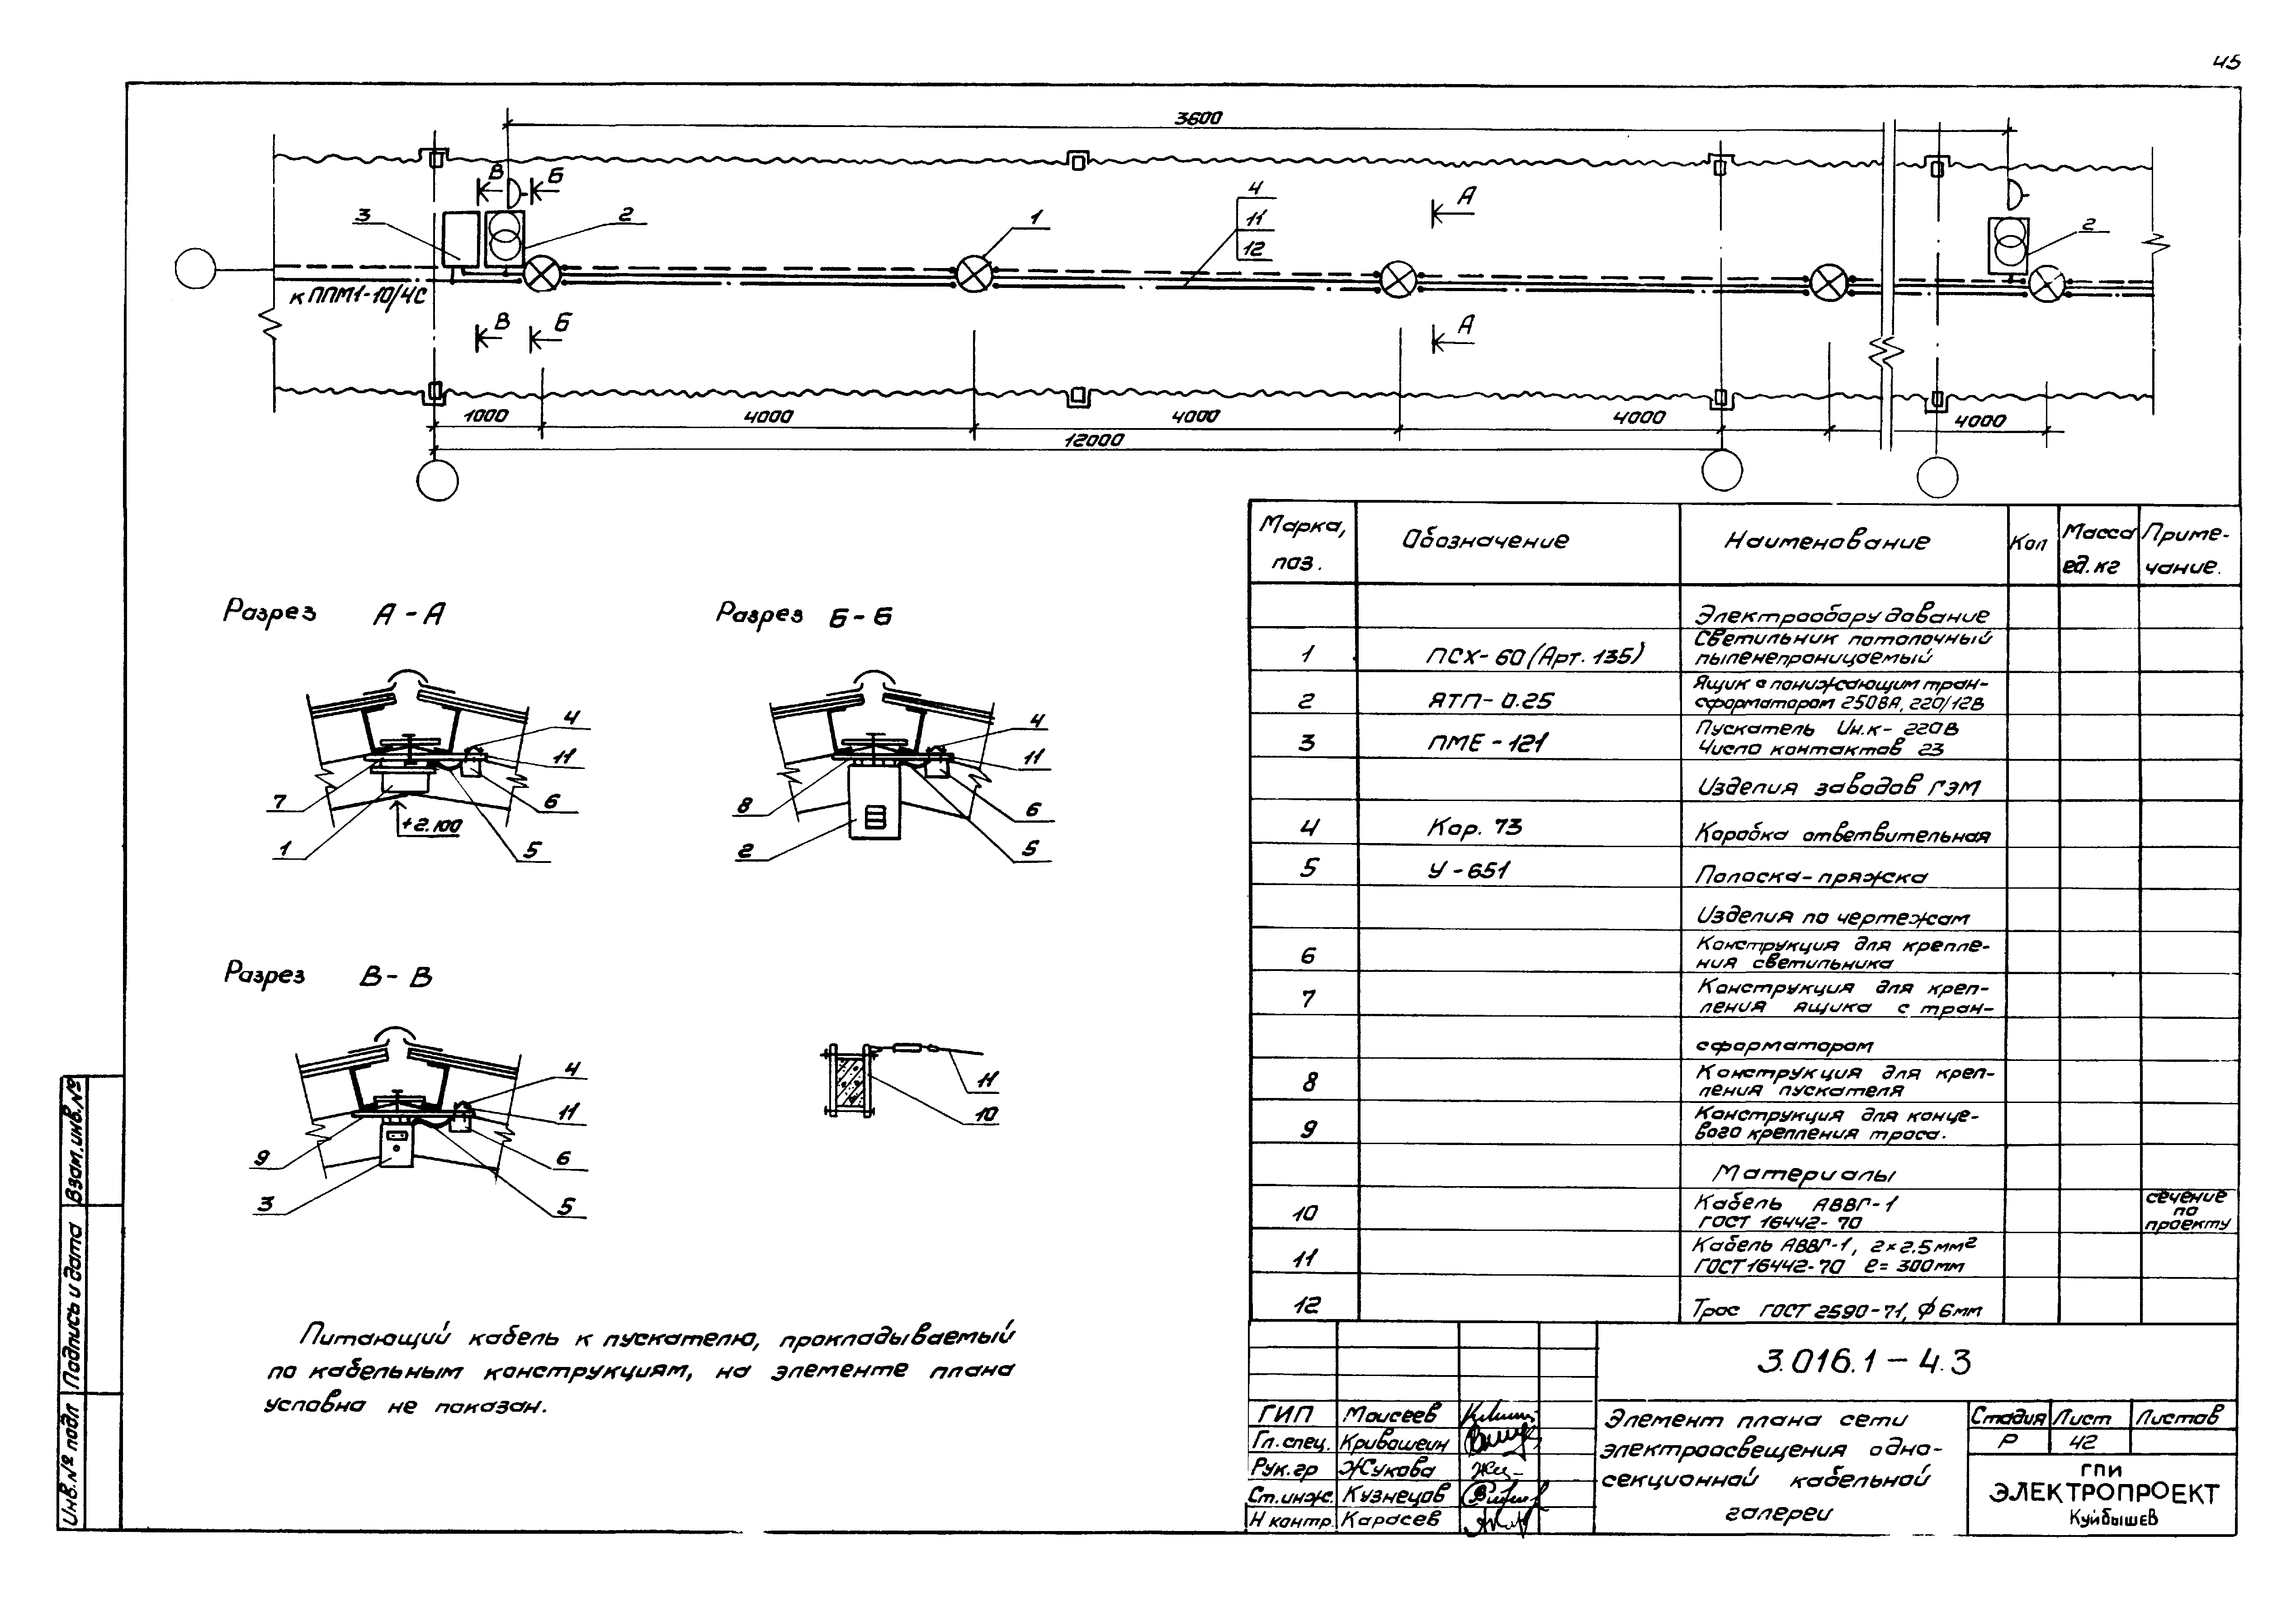 45
3600
В Б
3
2
1
4
11
12
А
2
к ППМ1-10/4С
В Б
А
1000
4000
4000
4000
4000
12000
Разрез А-А
4
11
7
6
+2.100
1
5
Разрез Б-Б
4
11
8
6
2
5
Разрез В-В
4
11
9
6
3
5
11
10
Питающий кабель к пускателю, прокладываемый
по кабельным конструкциям, на элементе плана
условно не показан.
Марка, поз. Обозначение Наименование Кол Масса ед. кг Приме-чание.
Электрооборудование
1 ПСХ-60 (Арт. 135) Светильник потолочный
пыленепроницаемый
2 ЯТП-0.25 Ящик с понижающим тран-
сформатором 250ВА, 220/12В
3 ПМЕ-121 Пускатель Uн.к-220В
Число контактов 23
Изделия заводов ГЭМ
4 Кор. 73 Коробка ответвительная
5 У-651 Полоска-пряжка
Изделия по чертежам
6 Конструкция для крепле-
ния светильника
7 Конструкция для креп-
ления ящика с тран-
сформатором
8 Конструкция для креп-
ления пускателя
9 Конструкция для конце-
вого крепления троса.
Материалы
10 Кабель АВВГ-1
ГОСТ 16442-70
сечение
по
проекту
11 Кабель АВВГ-1, 2×2.5мм²
ГОСТ 16442-70 ℓ=300мм
12 Трос ГОСТ 2590-71, ϕ6мм
3.016.1-4.3
ГИП Моисеев
Гл. спец. Кривошеин
Рук. гр Жукова
Ст. инж. Кузнецов
Н контр. Карасев
Элемент плана сети
электроосвещения одно-
секционной кабельной
галереи
Стадия Лист Листов
Р 42
ГПИ
ЭЛЕКТРОПРОЕКТ
Куйбышев
Взам. инв. №
Подпись и дата
Инв. № подл